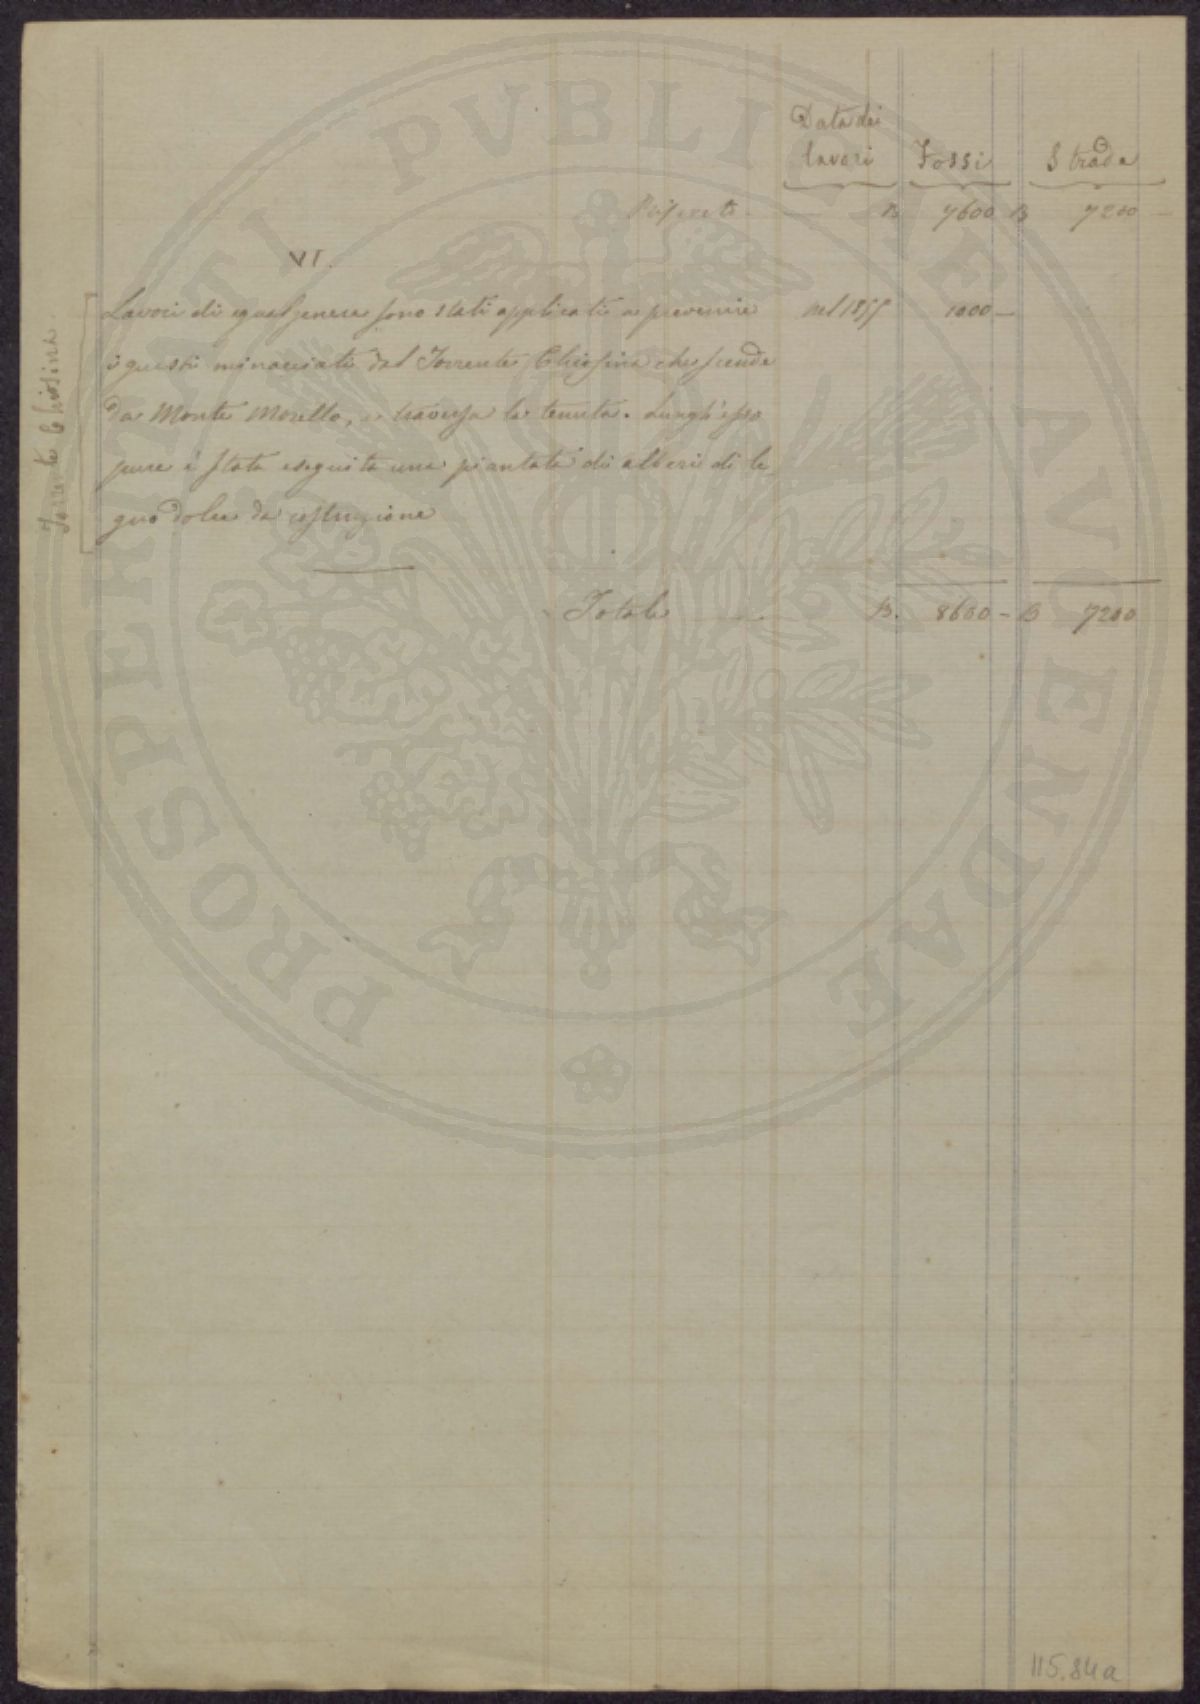 Data dei
lavori Fossi Strada
Riporto — B 7600 B 7200 —
VI.
Torrente Chiosina.
Lavori di egual genere sono stati applicati a prevenire nel 1855 1000 —
i guasti minacciati dal Torrente Chiosina che scende
da Monte Morello, e traversa la tenuta. Lungh'esso
pure è stata eseguita una piantata di alberi di le
gno dolce da costruzione
Totale B. 8600 — B 7200
115.84a
PROSPERITATI PVBLICAE AVGENDAE